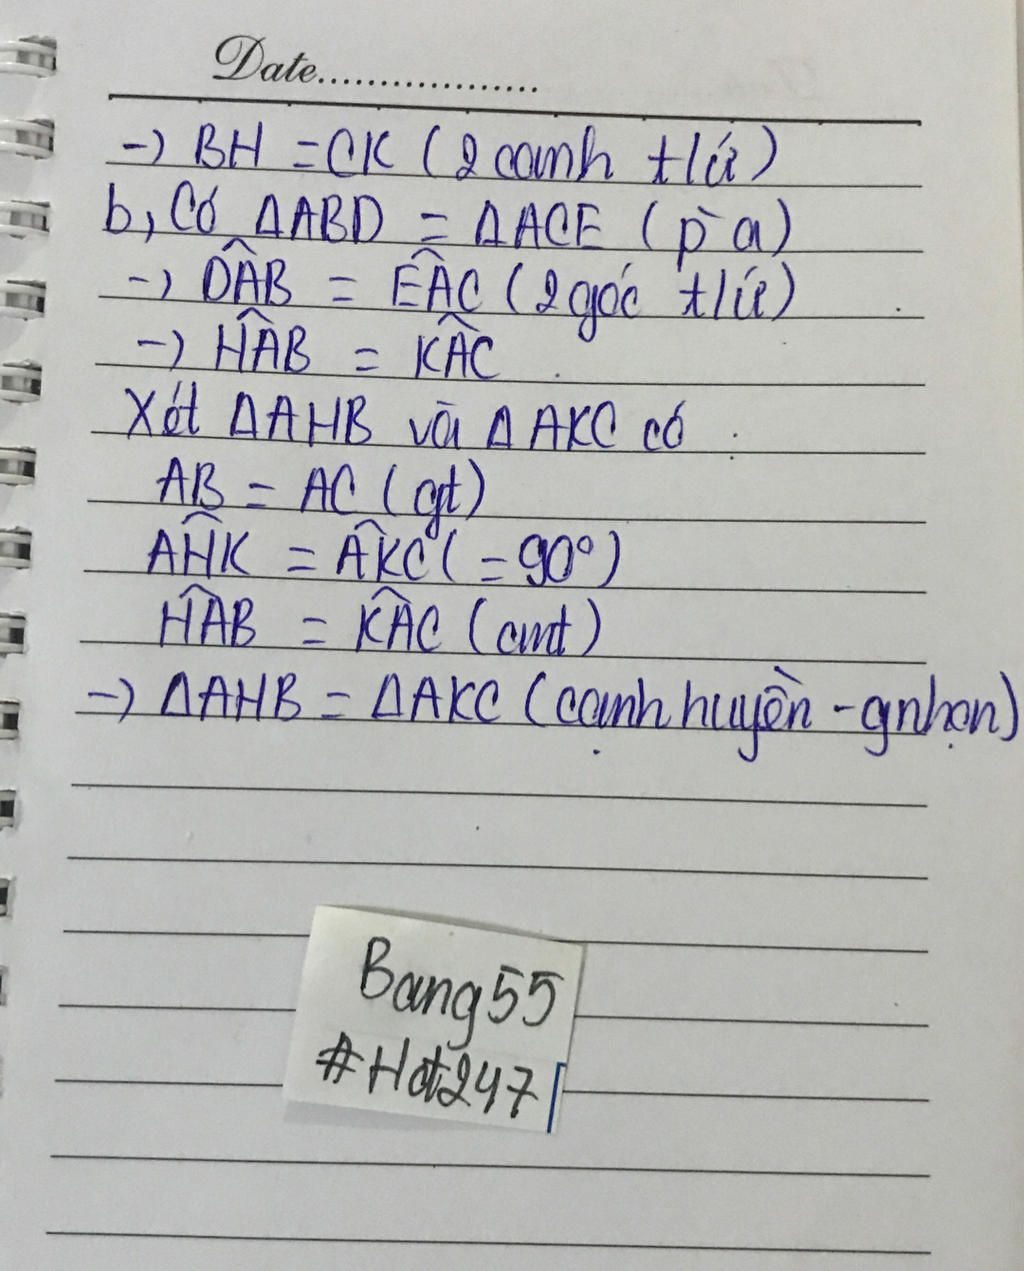 Date..................
-> BH = CK (2 cạnh t/ứ)
b, Có ΔABD = ΔACE (p̀ a)
-> D̂AB = ÊAC (2 góc t/ứ)
-> ĤAB = K̂AC
Xét ΔAHB và ΔAKC có :
AB = AC (gt)
AĤK = AK̂C (= 90°)
HÂB = KÂC (cmt)
-> ΔAHB = ΔAKC (cạnh huyền - gnhọn)
Bang55
#Hot247